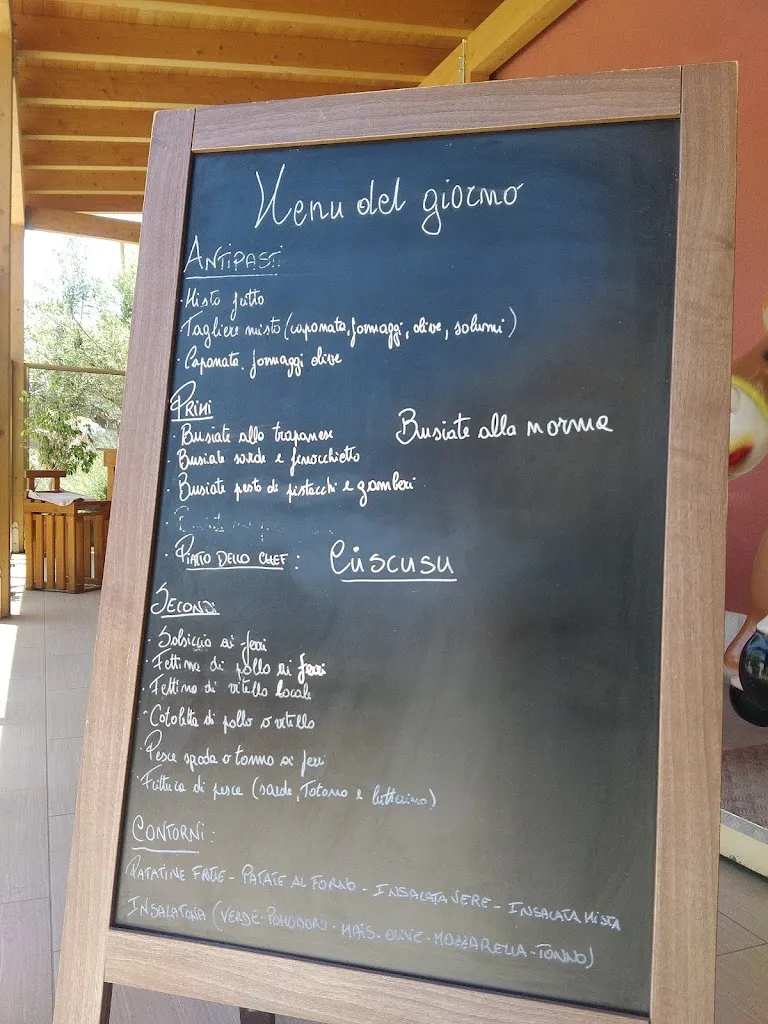 Menu del giorno
ANTIPASTI
· Misto fritto
· Tagliere misto (caponata, formaggi, olive, salumi)
· Caponata, formaggi olive
PRIMI
· Busiate alla trapanese
Busiate alla norma
· Busiate sarde e finocchietto
· Busiate pesto di pistacchi e gamberi
· PIATTO DELLO CHEF : Cùscusu
SECONDI
· Salsiccia ai ferri
· Fettina di pollo ai ferri
· Fettina di vitello locale
· Cotoletta di pollo o vitello
· Pesce spada o tonno ai ferri
· Frittura di pesce (sarde, Totano e
CONTORNI :
PATATINE FRITTE - PATATE AL FORNO - INSALATA VERDE - INSALATA MISTA
INSALATONA (VERDE - POMODORI - MAIS - OLIVE - MOZZARELLA - TONNO)